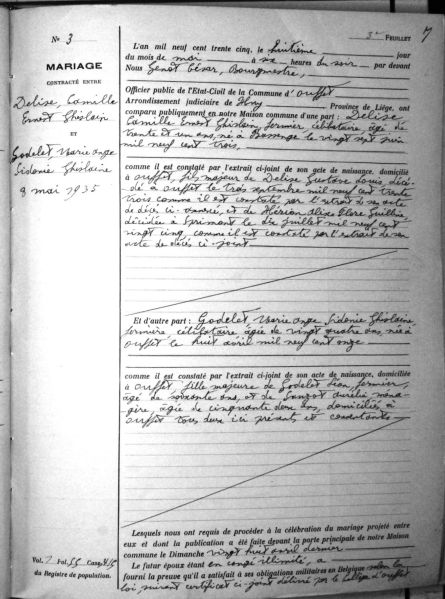 3e FEUILLET 7
No 3
MARIAGE
CONTRACTÉ ENTRE
Delise, Camille
Ernest Ghislain
ET
Godelet, Marie Ange
Sidonie Ghislaine
8 mai 1935
L'an mil neuf cent trente cinq, le huitième jour
du mois de mai à six heures du soir, par devant
Nous Genot César, Bourgmestre,
Officier public de l'Etat-Civil de la Commune d'Ouffet
Arrondissement judiciaire de Huy, Province de Liége, ont
comparu publiquement en notre Maison commune d'une part : Delise
Camille Ernest Ghislain, fermier, célibataire, âgé de
trente et un ans, né à le vingt sept juin
mil neuf cent trois,
comme il est constaté par l'extrait ci-joint de son acte de naissance, domicilié
à Ouffet, fils majeur de Delise Gustave Louis, décé-
dé à Ouffet le trois septembre mil neuf cent trente
trois comme il est constaté par l'extrait de son acte
de décès ci-annexé, et de
décédée à Sprimont le dix juillet mil neuf cent
vingt cinq, comme il est constaté par l'extrait de son
acte de décès ci-joint
Et d'autre part : Godelet, Marie Ange Sidonie Ghislaine
fermière, célibataire, âgée de vingt quatre ans, née à
Ouffet le huit avril mil neuf cent onze
comme il est constaté par l'extrait ci-joint de son acte de naissance, domiciliée
à Ouffet, fille majeure de Godelet Jean, fermier,
âgé de soixante ans, et de Aurélie ména-
gère, âgée de cinquante deux ans, domiciliés à
Ouffet tous deux ici présents et consentants
Lesquels nous ont requis de procéder à la célébration du mariage projeté entre
eux et dont la publication a été faite devant la porte principale de notre Maison
commune le Dimanche vingt huit avril dernier
Le futur époux étant en congé illimité, a
fourni la preuve qu'il a satisfait à ses obligations militaires en Belgique selon la
loi, suivant certificat ci-joint délivré par le Collège d'Ouffet
Vol. 7 Fol. 55 Case
du Registre de population.